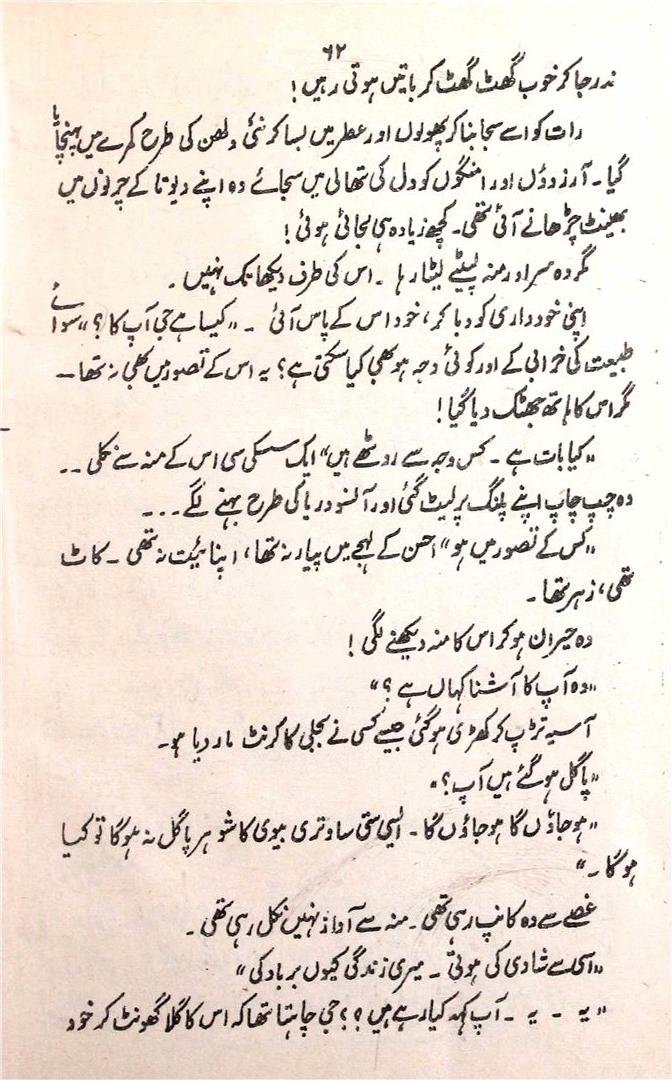 ۶۲
ندر جا کر خوب گھٹ گھٹ کر باتیں ہوتی رہیں!
رات کو اسے سجا بنا کر پھولوں اور عطر میں بسا کر نئی دلھن کی طرح کمرے میں پہنچایا
گیا۔ آرزوؤں اور امنگوں کو دل کی تھالی میں سجائے وہ اپنے دیوتا کے چرنوں میں
بھینٹ چڑھانے آئی تھی۔ کچھ زیادہ ہی لجائی ہوئی!
مگر وہ سر اور منہ لپیٹے لیٹا رہا ۔ اس کی طرف دیکھا تک نہیں ۔
اپنی خودداری کو دبا کر، خود اس کے پاس آئی ۔ "کیسا ہے جی آپ کا؟" سوائے
طبیعت کی خرابی کے اور کوئی وجہ ہو بھی کیا سکتی ہے؟ یہ اس کے تصور میں بھی نہ تھا۔
مگر اس کا ہاتھ جھٹک دیا گیا!
"کیا بات ہے ۔ کس وجہ سے روٹھے ہیں" ایک سسکی سی اس کے منہ سے نکلی ۔۔
وہ چپ چاپ اپنے پلنگ پر لیٹ گئی اور آنسو دریا کی طرح بہنے لگے ۔۔۔
"کس کے تصور میں ہو" احسن کے لہجے میں پیار نہ تھا، اپنائیت نہ تھی ۔ کاٹ
تھی، زہر تھا۔
وہ حیران ہو کر اس کا منہ دیکھنے لگی!
"وہ آپ کا آشنا کہاں ہے؟"
آسیہ تڑپ کر کھڑی ہو گئی جیسے کسی نے بجلی کا کرنٹ مار دیا ہو۔
"پاگل ہو گئے ہیں آپ؟"
"ہو جاؤں گا ہو جاؤں گا۔ ایسی ستی ساوتری بیوی کا شوہر پاگل نہ ہو گا تو کیا
ہو گا۔"
غصے سے وہ کانپ رہی تھی ۔ منہ سے آواز نہیں نکل رہی تھی ۔
"اسی سے شادی کی ہوتی ۔ میری زندگی کیوں برباد کی"
"یہ ۔ یہ ۔ آپ کہہ کیا رہے ہیں؟؟ جی چاہتا تھا کہ اس کا گلا گھونٹ کر خود